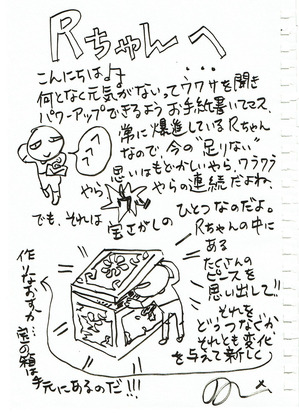 Rちゃんへ
こんにちは
何となく元気がないってウワサを聞き
パワーアップできるようお手紙書いてマス。
常に爆進しているRちゃん
なので今の"足りない"
思いはもどかしいやら、ワラワラ
やら やらの連続だよね、
でも、それは宝さがしのひとつなのだよ。
Rちゃんの中に
ある
たくさんの
ピースを
思い出して!!
それを
どうつなぐか
それとも変化
を与えて新しく
作りなおすか…
宝の箱は
手元にあるのだ!!!